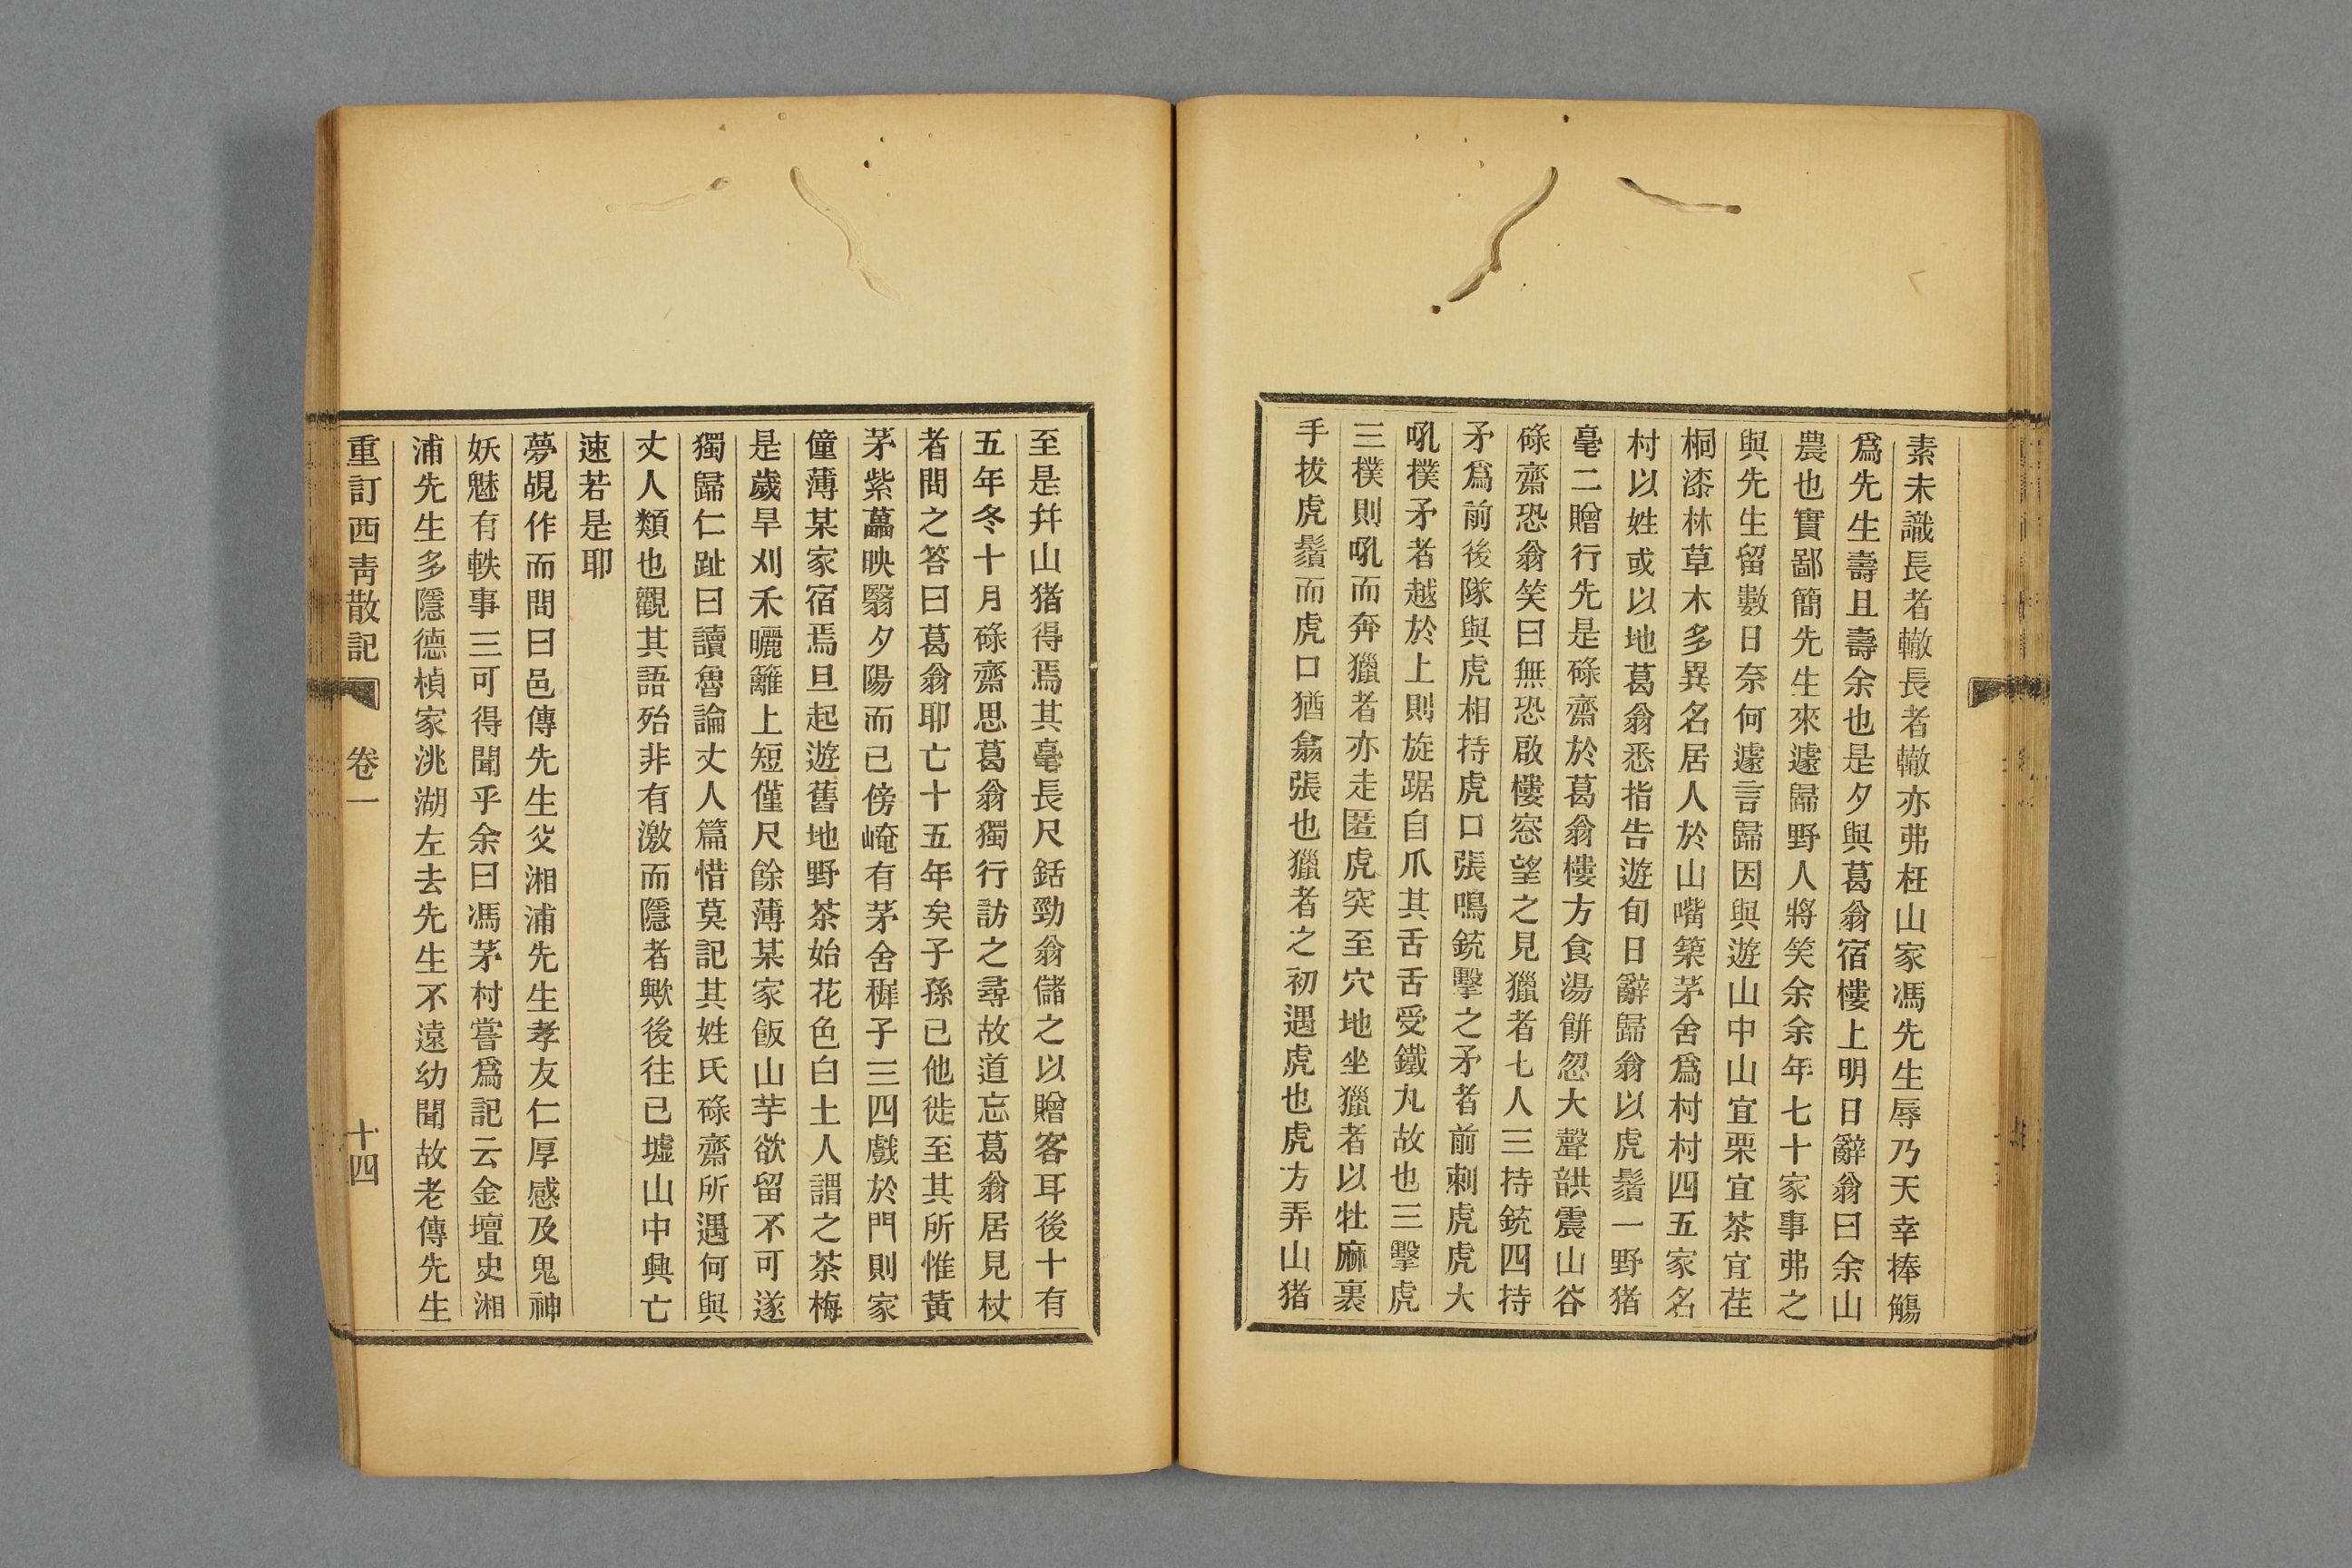 素未識長者轍長者轍亦弗枉山家馮先生辱乃天幸捧觴
爲先生壽且壽余也是夕與葛翁宿樓上明日辭翁曰余山
農也實鄙簡先生來遽歸野人將笑余余年七十家事弗之
與先生留數日奈何遽言歸因與遊山中山宜栗宜茶宜荏
桐漆林草木多異名居人於山嘴築茅舍爲村村四五家名
村以姓或以地葛翁悉指告遊旬日辭歸翁以虎鬚一野猪
毫二贈行先是碌齋於葛翁樓方食湯餅忽大聲鍈震山谷
碌齋恐翁笑曰無恐啟樓窓望之見獵者七人三持銃四持
矛爲前後隊與虎相持虎口張鳴銃擊之矛者前刺虎虎大
吼撲矛者越於上則旋踞自爪其舌舌受鐵丸故也三擊虎
三撲則吼而奔獵者亦走匿虎突至穴地坐獵者以牡麻裹
手拔虎鬚而虎口猶翕張也獵者之初遇虎也虎方弄山猪
至是幷山猪得焉其毫長尺銛勁翁儲之以贈客耳後十有
五年冬十月碌齋思葛翁獨行訪之尋故道忘葛翁居見杖
者問之答曰葛翁耶亡十五年矣子孫已他徙至其所惟黃
茅紫藟映翳夕陽而已傍崦有茅舍穉子三四戲於門則家
僮薄某家宿焉旦起遊舊地野茶始花色白土人謂之茶梅
是歲旱刈禾曬籬上短僅尺餘薄某家飯山芋欲留不可遂
獨歸仁趾曰讀魯論丈人篇惜莫記其姓氏碌齋所遇何與
丈人類也觀其語殆非有激而隱者歟後往已墟山中興亡
速若是耶
夢覘作而問曰邑傳先生父湘浦先生孝友仁厚感及鬼神
妖魅有軼事三可得聞乎余曰馮茅村嘗爲記云金壇史湘
浦先生多隱德楨家洮湖左去先生不遠幼聞故老傳先生
重訂西靑散記 卷一 十四